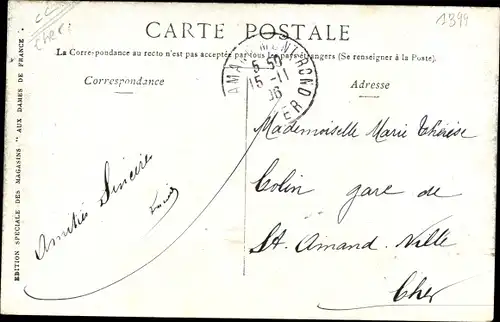 1399
CC
Cher
CARTE POSTALE
La Correspondance au recto n'est pas acceptée par tous les pays étrangers (Se renseigner à la Poste).
Correspondance
Adresse
AMAND MONTROND
5 50
15-11
06
CHER
Mademoiselle Marie Thérèse
Colin gare de
St. Amand. Ville
Cher
Amitiés Sincère
EDITION SPECIALE DES MAGASINS " AUX DAMES DE FRANCE "